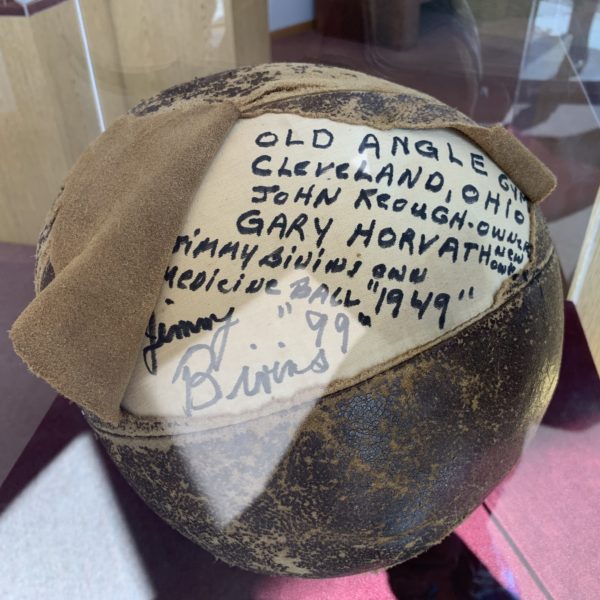 OLD ANGLE GYM
CLEVELAND, OHIO
JOHN KEOUGH-OWNER
GARY HORVATH NEW OWNER
JIMMY BIVINS OWN
MEDICINE BALL "1949"
Jimmy "99"
Bivins